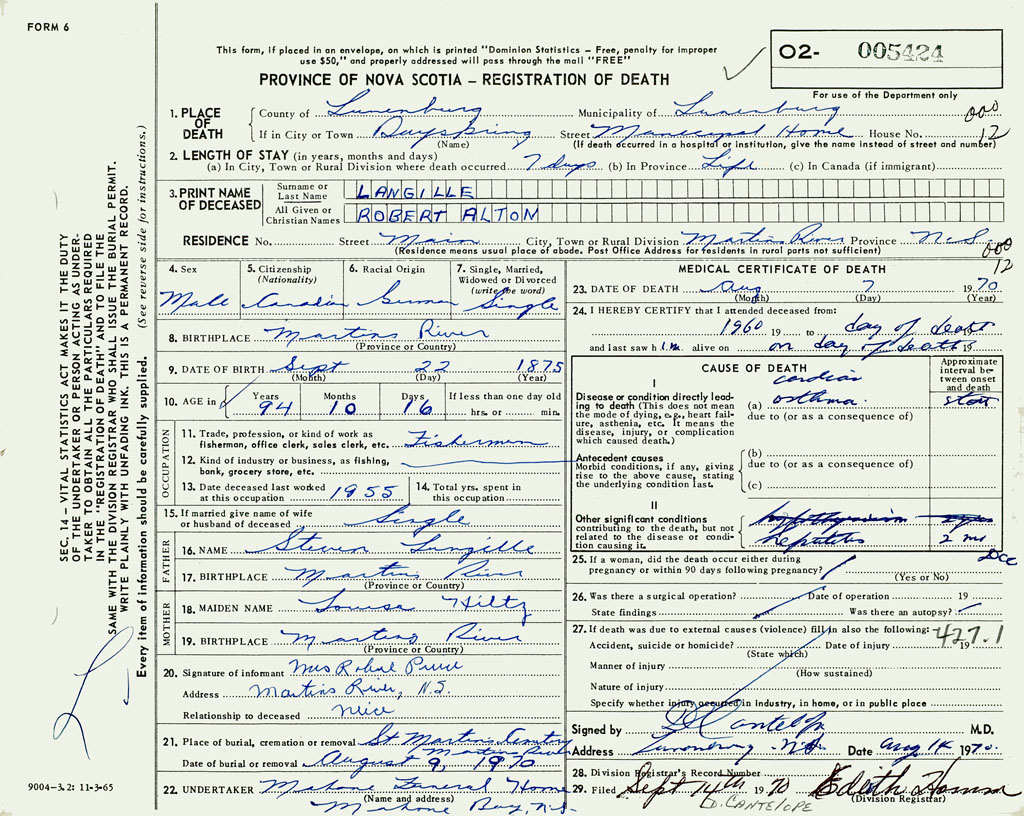 FORM 6
This form, if placed in an envelope, on which is printed "Dominion Statistics – Free, penalty for improper
use $50," and properly addressed will pass through the mail "FREE"
PROVINCE OF NOVA SCOTIA – REGISTRATION OF DEATH
O2- 005424
For use of the Department only
000
12
1. PLACE OF DEATH
County of Lunenburg Municipality of Lunenburg
If in City or Town Dayspring Street Municipal Home House No.
(Name) (If death occurred in a hospital or institution, give the name instead of street and number)
2. LENGTH OF STAY (in years, months and days)
(a) In City, Town or Rural Division where death occurred 7 days (b) In Province Life (c) In Canada (if immigrant)
3. PRINT NAME OF DECEASED
Surname or Last Name LANGILLE
All Given or Christian Names ROBERT ALTON
RESIDENCE No. Street Main City, Town or Rural Division Martins River Province N.S
(Residence means usual place of abode. Post Office Address for residents in rural parts not sufficient)
000
12
4. Sex Male
5. Citizenship (Nationality) Canadian
6. Racial Origin German
7. Single, Married, Widowed or Divorced (write the word) Single
8. BIRTHPLACE Martins River
(Province or Country)
9. DATE OF BIRTH Sept 22 1875
(Month) (Day) (Year)
10. AGE in Years 94 Months 10 Days 16 If less than one day old hrs. or min.
OCCUPATION
11. Trade, profession, or kind of work as fisherman, office clerk, sales clerk, etc. Fisherman
12. Kind of industry or business, as fishing, bank, grocery store, etc.
13. Date deceased last worked at this occupation 1955
14. Total yrs. spent in this occupation
15. If married give name of wife or husband of deceased Single
FATHER
16. NAME Steven Langille
17. BIRTHPLACE Martins River
(Province or Country)
MOTHER
18. MAIDEN NAME Louise Hiltz
19. BIRTHPLACE Martins River
(Province or Country)
20. Signature of informant Mrs
Address Martins River, N.S.
Relationship to deceased neice
21. Place of burial, cremation or removal St Martins Cemetry
Martins River
Date of burial or removal August 9, 1970
22. UNDERTAKER Mahone Funeral Home
(Name and address)
Mahone Bay, N.S.
MEDICAL CERTIFICATE OF DEATH
23. DATE OF DEATH Aug 7 1970
(Month) (Day) (Year)
24. I HEREBY CERTIFY that I attended deceased from:
1960 19 to day of death
and last saw him alive on on day of death 19
CAUSE OF DEATH
Approximate interval between onset and death
I
Disease or condition directly leading to death (This does not mean the mode of dying, e.g., heart failure, asthenia, etc. It means the disease, injury, or complication which caused death.)
cardiac
(a) asthma stat
due to (or as a consequence of)
Antecedent causes
Morbid conditions, if any, giving rise to the above cause, stating the underlying condition last.
(b)
due to (or as a consequence of)
(c)
II
Other significant conditions contributing to the death, but not related to the disease or condition causing it.
hepatitis 2 mo
25. If a woman, did the death occur either during pregnancy or within 90 days following pregnancy?
(Yes or No)
26. Was there a surgical operation? Date of operation 19
State findings Was there an autopsy?
27. If death was due to external causes (violence) fill in also the following: 427.1
Accident, suicide or homicide? Date of injury 19
(State which)
Manner of injury
(How sustained)
Nature of injury
Specify whether injury occurred in industry, in home, or in public place
Signed by D Cantelope M.D.
Address Lunenburg N.S. Date Aug 14 1970.
28. Division Registrar's Record Number
29. Filed Sept 14th 1970 Edith
(Division Registrar)
D. CANTELOPE
SEC. 14 – VITAL STATISTICS ACT MAKES IT THE DUTY
OF THE UNDERTAKER OR PERSON ACTING AS UNDER-
TAKER TO OBTAIN ALL THE PARTICULARS REQUIRED
IN THE "REGISTRATION OF DEATH" AND TO FILE THE
SAME WITH THE DIVISION REGISTRAR WHO SHALL ISSUE THE BURIAL PERMIT.
WRITE PLAINLY WITH UNFADING INK. THIS IS A PERMANENT RECORD.
Every item of information should be carefully supplied. (See reverse side for instructions.)
9004-3.2: 11-3-65